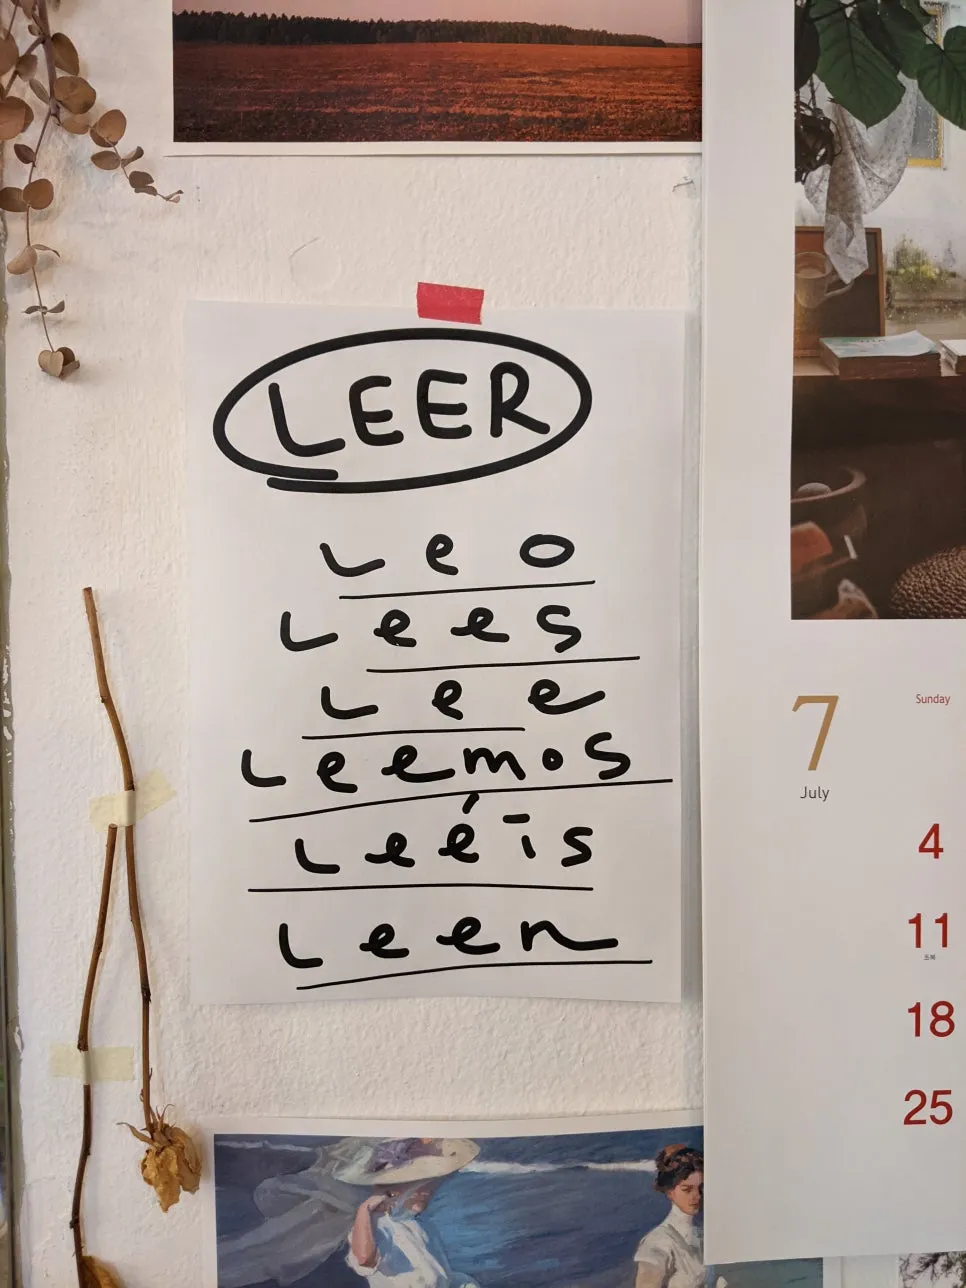 LEER
Leo
Lees
Lee
Leemos
Leéis
Leen
7
July
Sunday
4
11
초복
18
25